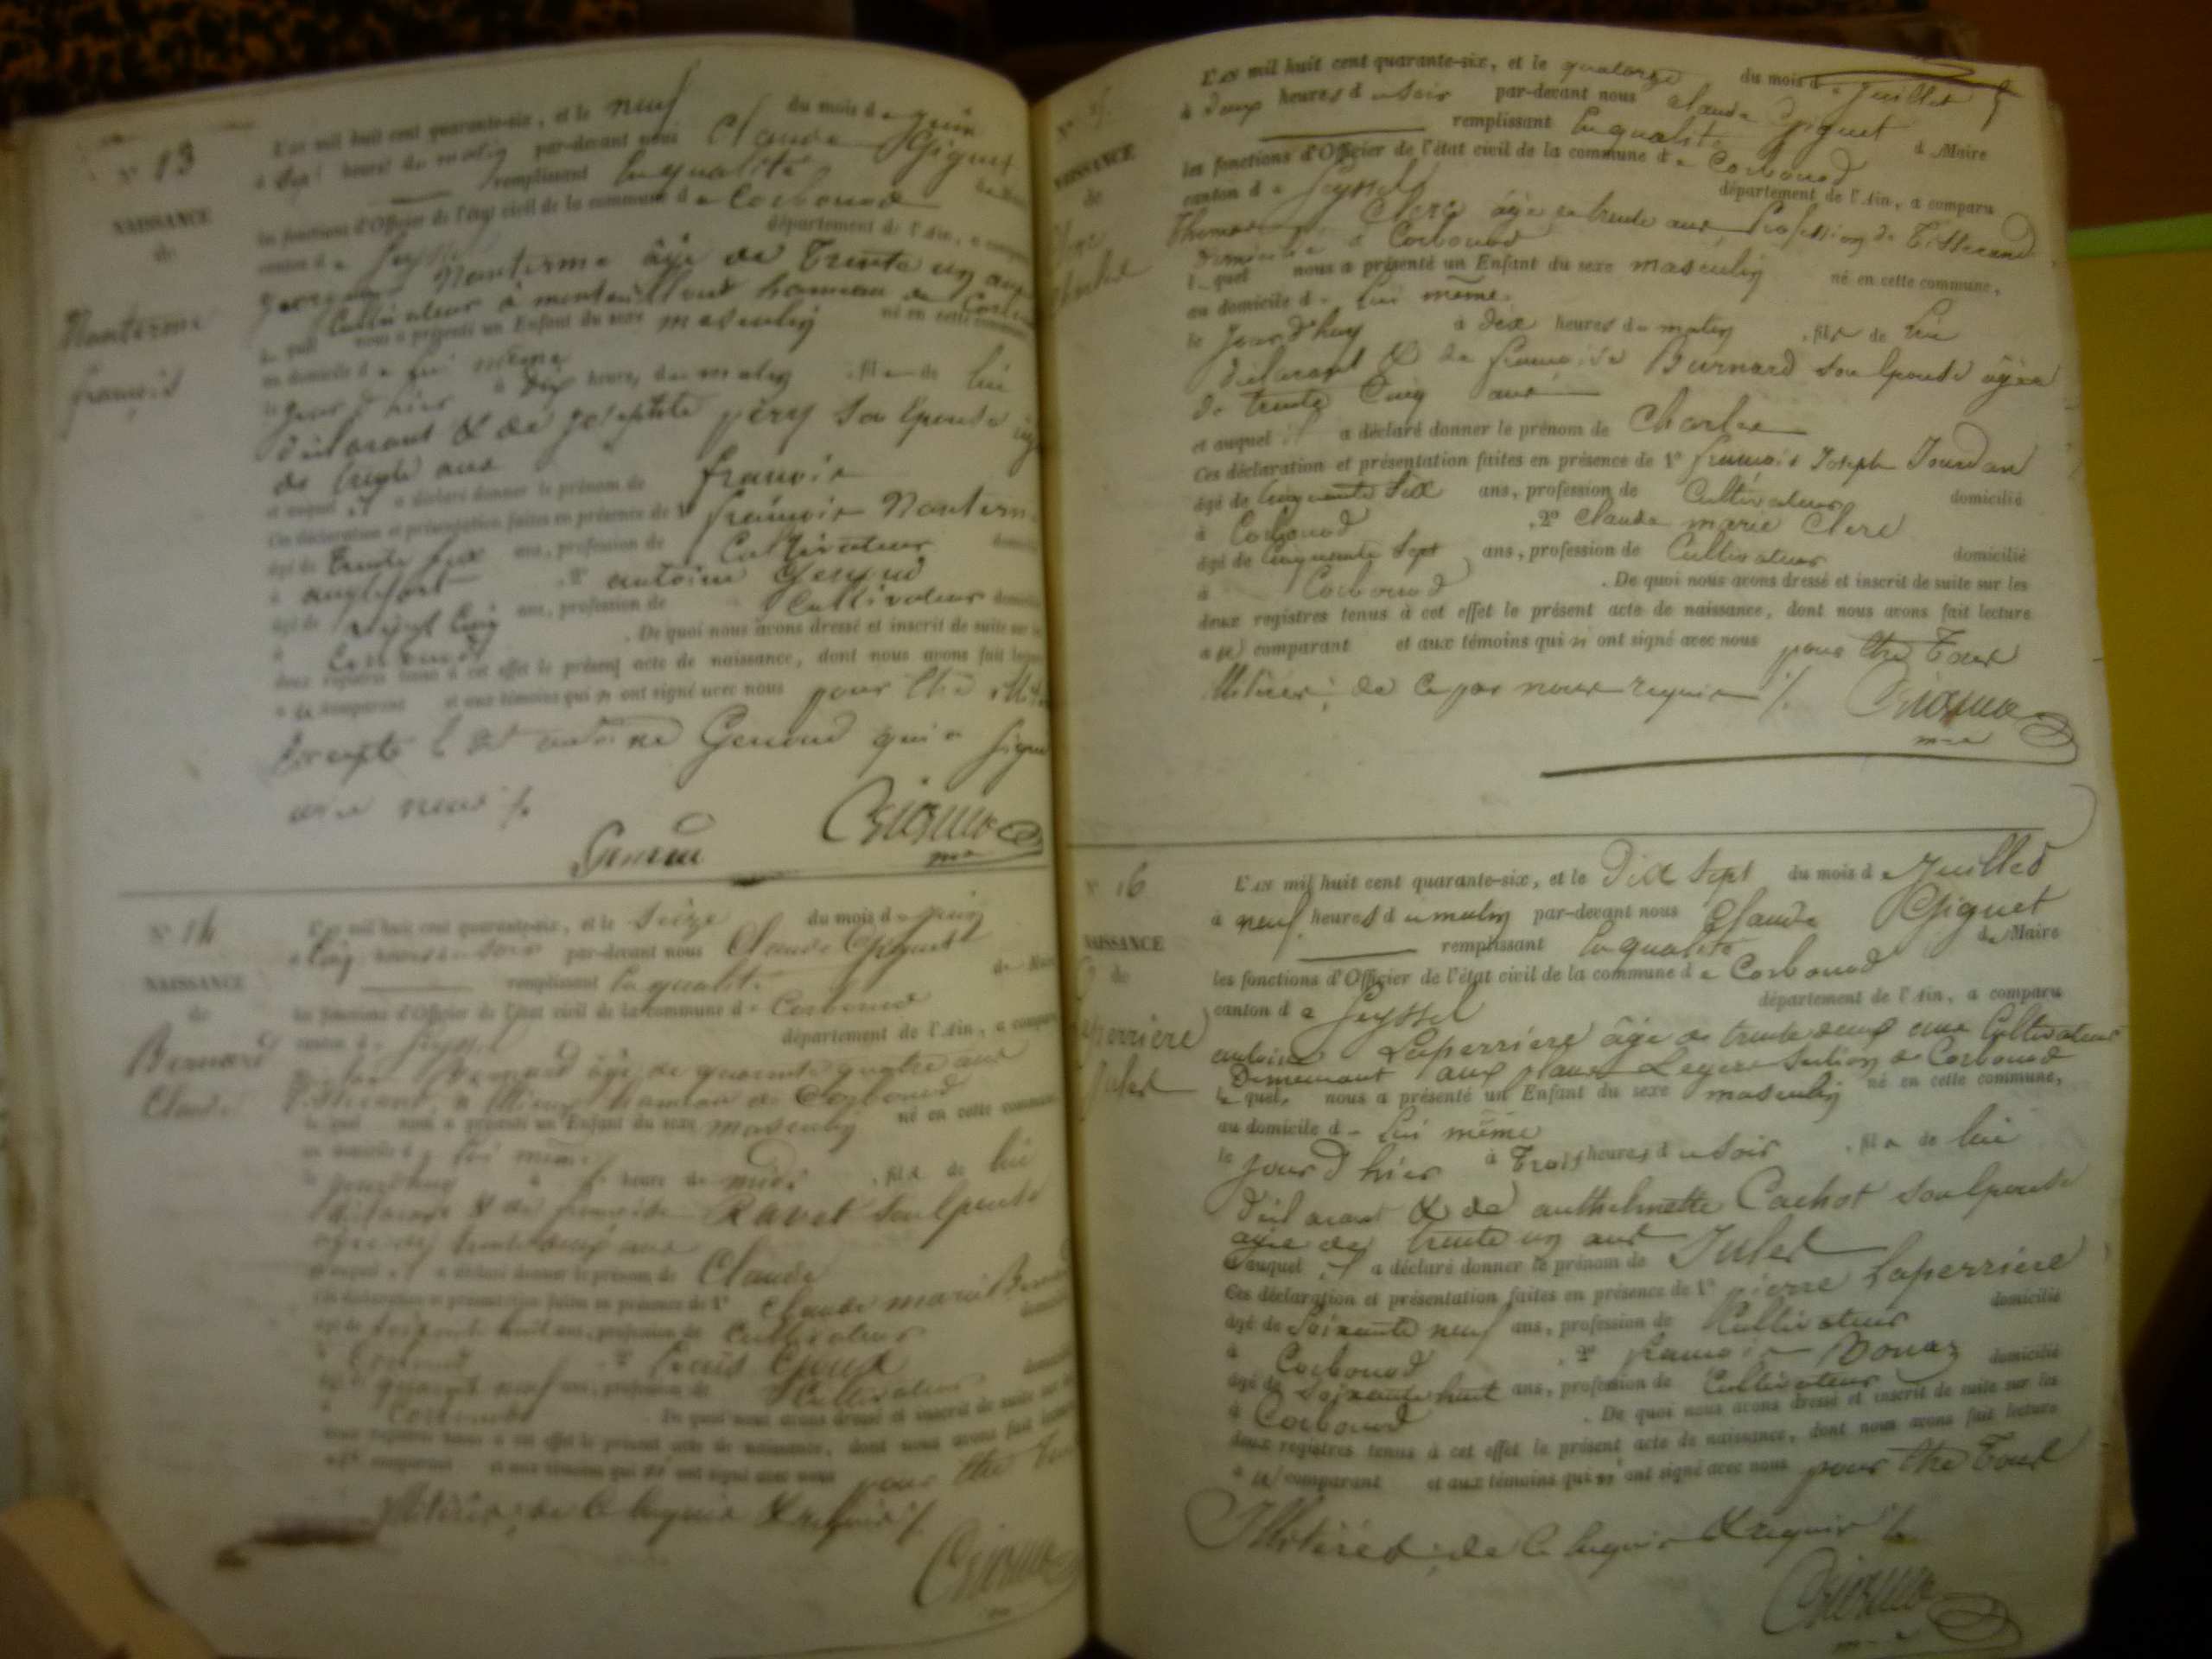 N° 13
NAISSANCE
de
Nanterme
françois
L'an mil huit cent quarante-six, et le neuf du mois de juin
à heures du matin par-devant nous Claude Giguet
remplissant la qualité de
les fonctions d'Officier de l'état civil de la commune de Corbonod
canton de Seyssel département de l'Ain, a comparu
Nanterme âgé de trente un ans
Cultivateur à hameau de
le quel nous a présenté un Enfant du sexe masculin né en cette commune
au domicile de lui même
le jour d'hier à dix heures du matin fils de lui
déclarant & de josephte pery son épouse
de trente ans
et auquel il a déclaré donner le prénom de françois
Ces déclaration et présentation faites en présence de 1° françois Nanterme
âgé de trente ans, profession de Cultivateur
à anglefort 2° antoine Genoud
âgé de vingt cinq ans, profession de Cultivateur
à Corbonod . De quoi nous avons dressé et inscrit de suite sur les
deux registres tenus à cet effet le présent acte de naissance, dont nous avons fait lecture
au comparant et aux témoins qui n'ont signé avec nous pour être
excepté le dit antoine Genoud qui a signé
avec nous ./.
N° 14
NAISSANCE
de
Bernard
Claude
L'an mil huit cent quarante-six, et le seize du mois de juin
à cinq heures du soir par-devant nous Claude Giguet
remplissant la qualité de
les fonctions d'Officier de l'état civil de la commune de Corbonod
canton de Seyssel département de l'Ain, a comparu
Bernard âgé de quarante quatre ans
hameau de Corbonod
le quel nous a présenté un Enfant du sexe masculin né en cette commune
au domicile de lui même
à heure de midi fils de lui
déclarant & de françoise Ravet son épouse
ans
et auquel il a déclaré donner le prénom de Claude
Ces déclaration et présentation faites en présence de 1° Claude marie Bernard
ans, profession de Cultivateur
à Corbonod 2°
ans, profession de Cultivateur
à Corbonod . De quoi nous avons dressé et inscrit de suite sur les
deux registres tenus à cet effet le présent acte de naissance, dont nous avons fait lecture
au comparant et aux témoins qui n'ont signé avec nous pour être tous
illitérés, de ce enquis & requis ./.
NAISSANCE
de
Clerc
Charles
L'an mil huit cent quarante-six, et le quatorze du mois de juillet
à deux heures du soir par-devant nous Claude Giguet
remplissant la qualité de Maire
les fonctions d'Officier de l'état civil de la commune de Corbonod
canton de Seyssel département de l'Ain, a comparu
Thomas Clerc âgé de trente ans profession de Tisserand
domicilié à Corbonod
lequel nous a présenté un Enfant du sexe masculin né en cette commune,
au domicile de lui même
le jourd'huy à dix heures du matin, fils de lui
déclarant & de françoise Burnard son épouse âgée
de trente cinq ans
et auquel il a déclaré donner le prénom de Charles
Ces déclaration et présentation faites en présence de 1° françois Joseph Jourdan
âgé de cinquante six ans, profession de Cultivateur domicilié
à Corbonod , 2° Claude marie Clerc
âgé de cinquante sept ans, profession de Cultivateur domicilié
à Corbonod . De quoi nous avons dressé et inscrit de suite sur les
deux registres tenus à cet effet le présent acte de naissance, dont nous avons fait lecture
au comparant et aux témoins qui n'ont signé avec nous pour être tous
illitérés, de ce par nous requis ./.
N° 16
NAISSANCE
de
Laperriere
Jules
L'an mil huit cent quarante-six, et le dix sept du mois de Juillet
à neuf heures du matin par-devant nous Claude Giguet
remplissant la qualité de Maire
les fonctions d'Officier de l'état civil de la commune de Corbonod
canton de Seyssel département de l'Ain, a comparu
antoine Laperriere âgé de trente deux ans Cultivateur
Demeurant aux section de Corbonod
le quel nous a présenté un Enfant du sexe masculin né en cette commune,
au domicile de lui même
le jour d'hier à trois heures du soir , fils de lui
déclarant & de anthelmette Cachot son épouse
âgée de trente un ans
auquel il a déclaré donner le prénom de Jules
Ces déclaration et présentation faites en présence de 1° pierre Laperriere
âgé de soixante neuf ans, profession de Cultivateur domicilié
à Corbonod , 2° françois Bonaz
âgé de soixante huit ans, profession de Cultivateur domicilié
à Corbonod . De quoi nous avons dressé et inscrit de suite sur les
deux registres tenus à cet effet le présent acte de naissance, dont nous avons fait lecture
au comparant et aux témoins qui n'ont signé avec nous pour être tous
illitérés, de ce enquis & requis ./.